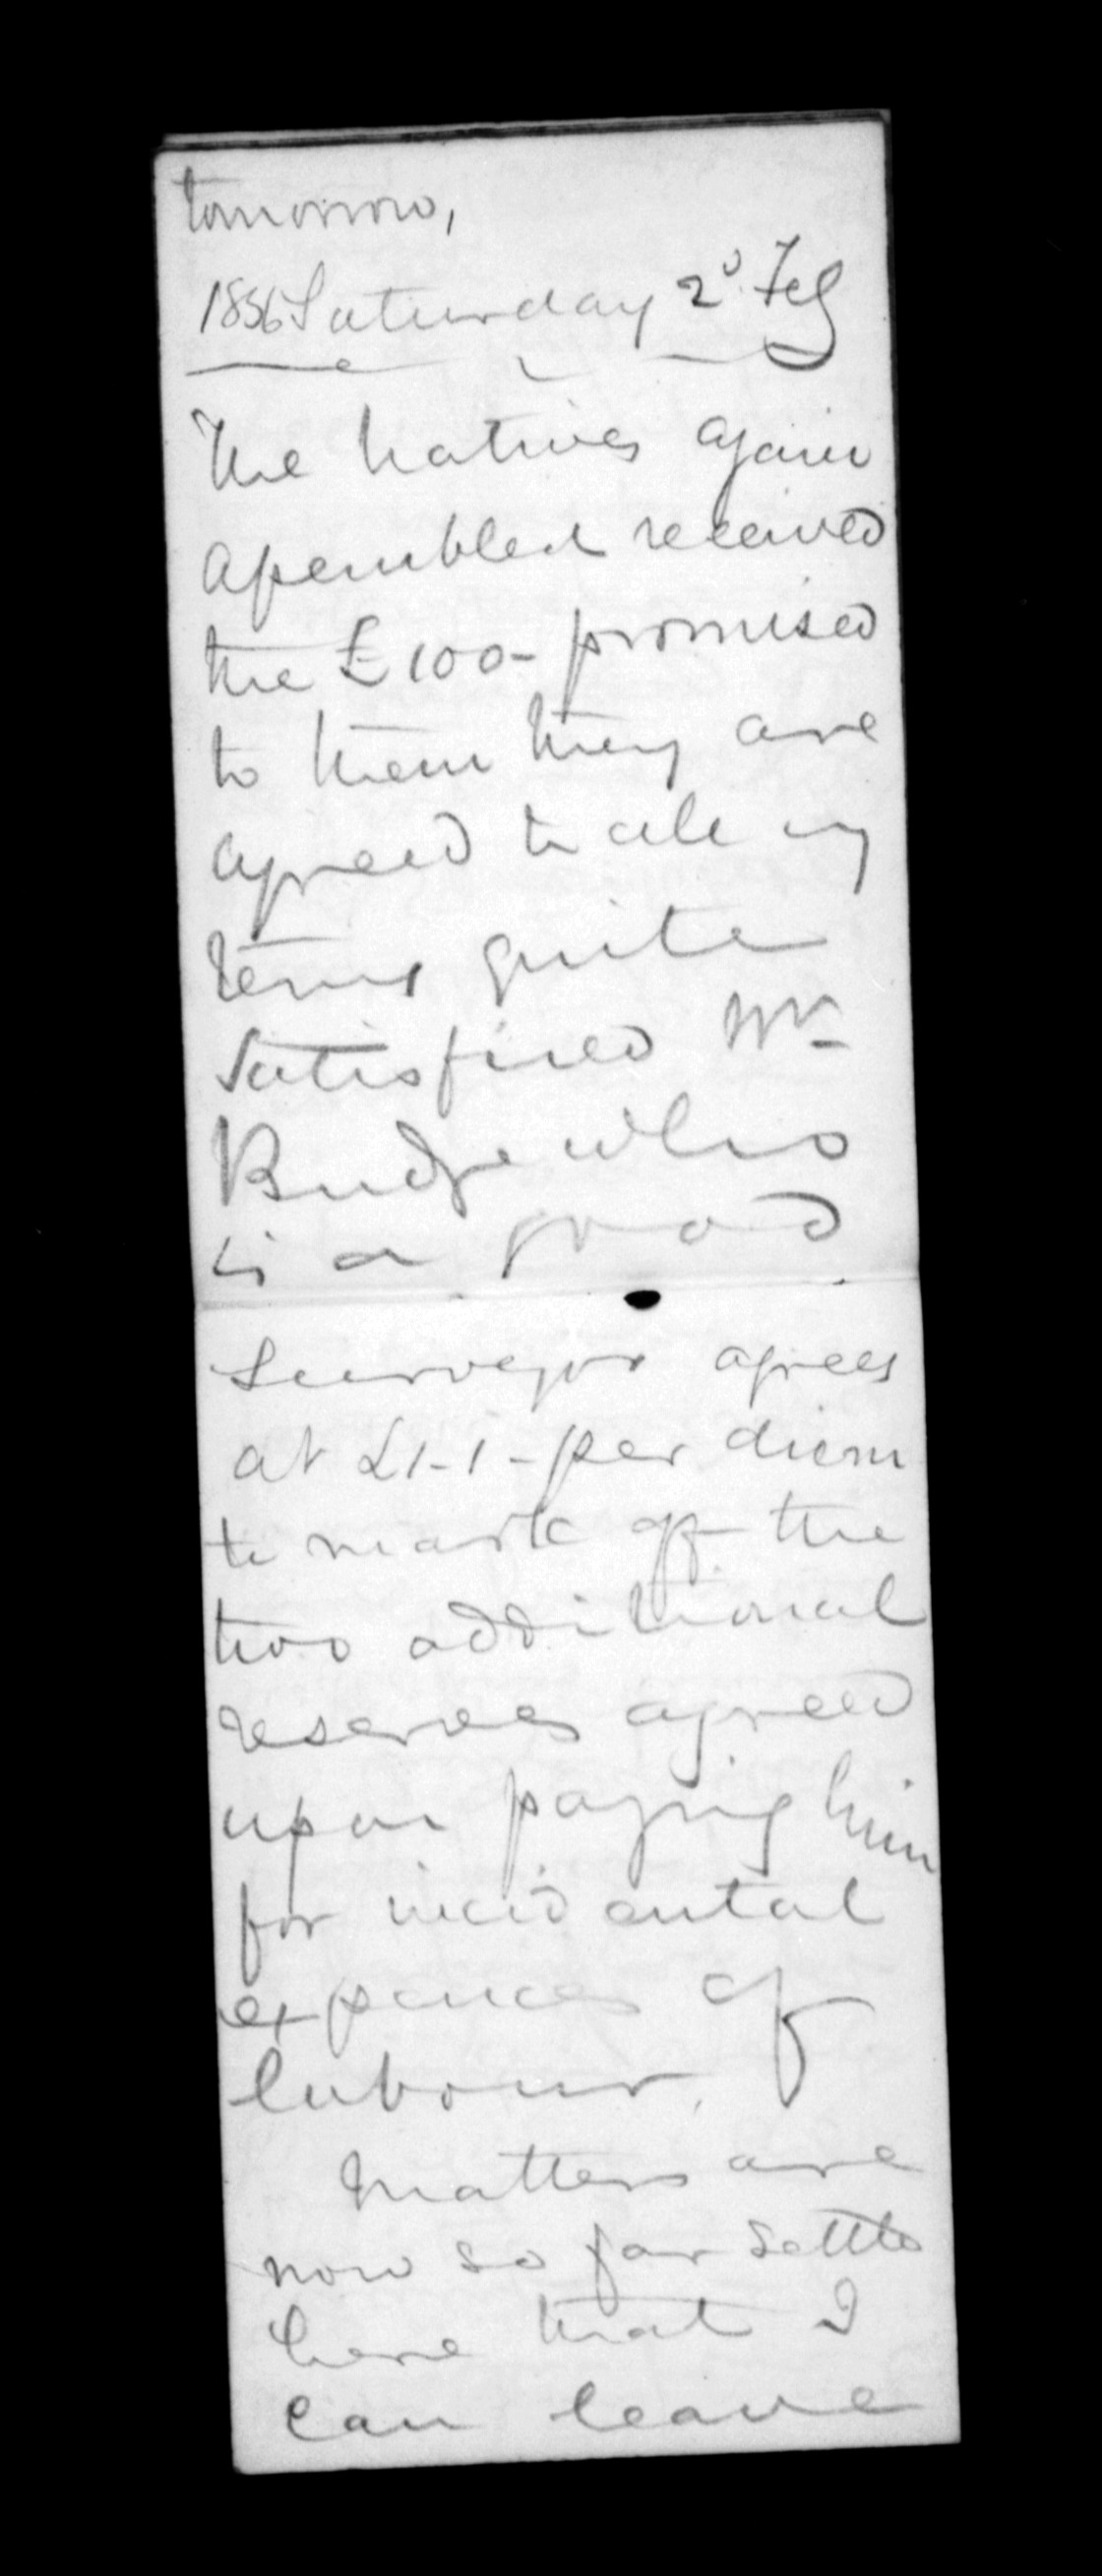 tomorrow,
1856 Saturday 2d Feb
The Natives again
assembled received
the £100- promised
to them they are
agreed to all my
terms quite
satisfied Mr
Budge who
is a good
Surveyor agrees
at £1-1- per diem
to mark off the
two additional
reserves agreed
upon paying him
for incidental
expences of
labour.
Matters are
now so far settled
here that I
can leave